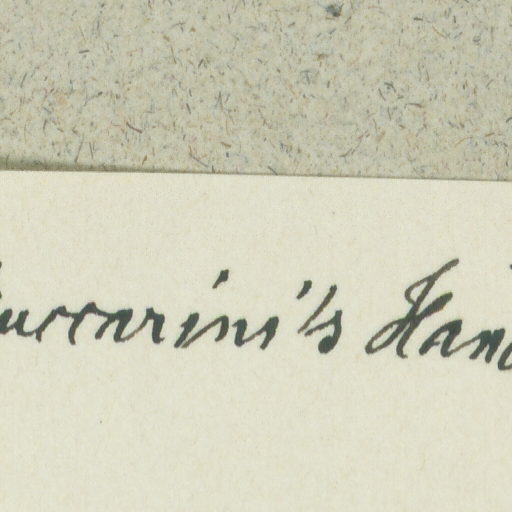 uccarini's Han